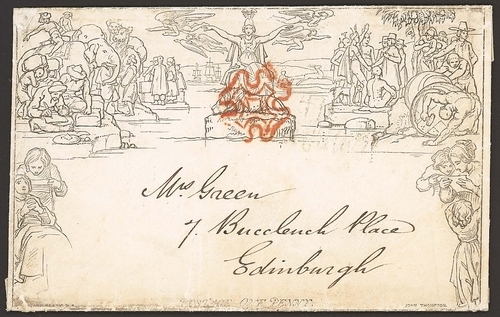 Mrs Green
7. Buccleuch Place
Edinburgh
POSTAGE ONE PENNY.
JOHN THOMPSON